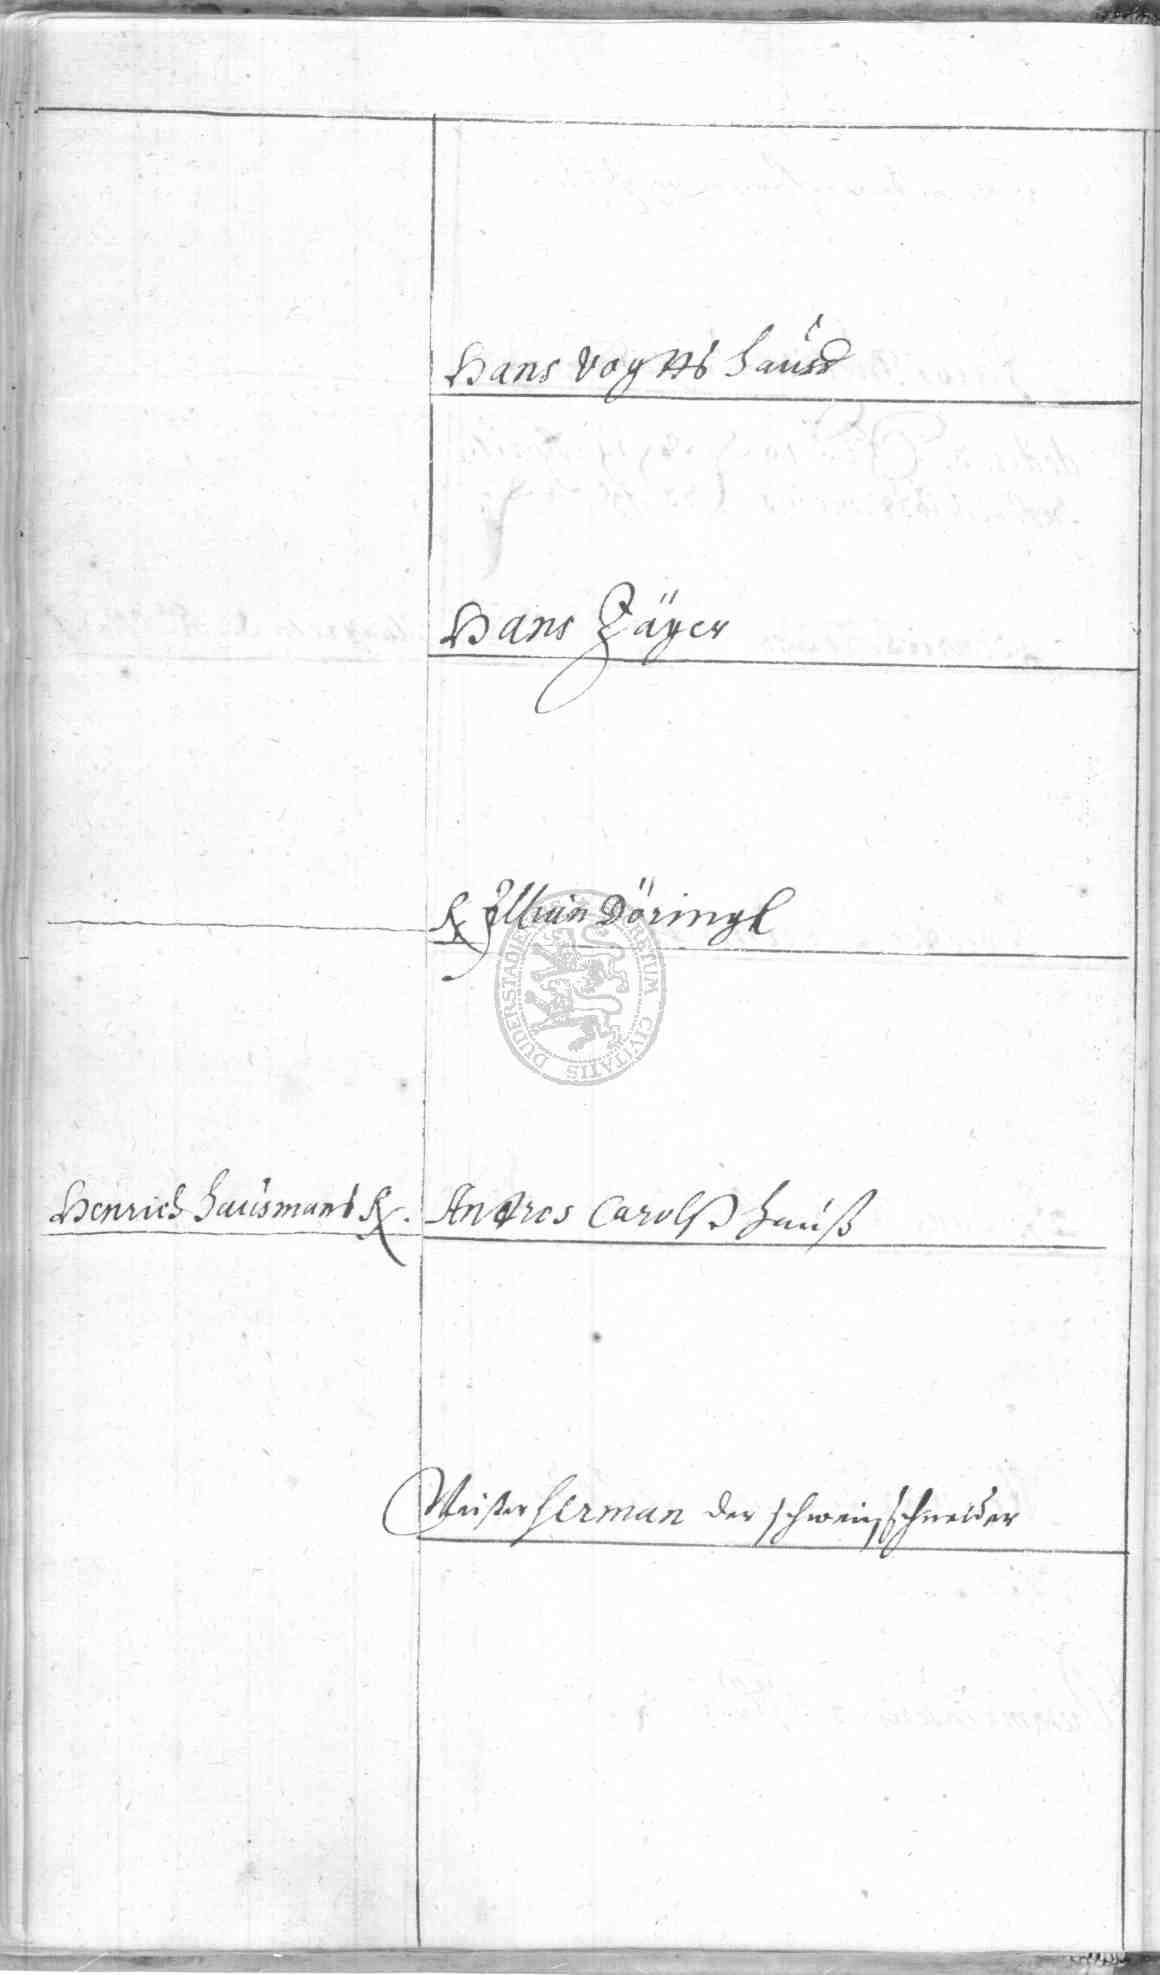 Hans Vogtts hauss
Hans Jäger
Döringk
DUDERSTADIENSIS CIVITATIS
Henrich Hausmans Andres Carolß hauß
Meister Herman der schweinschneider